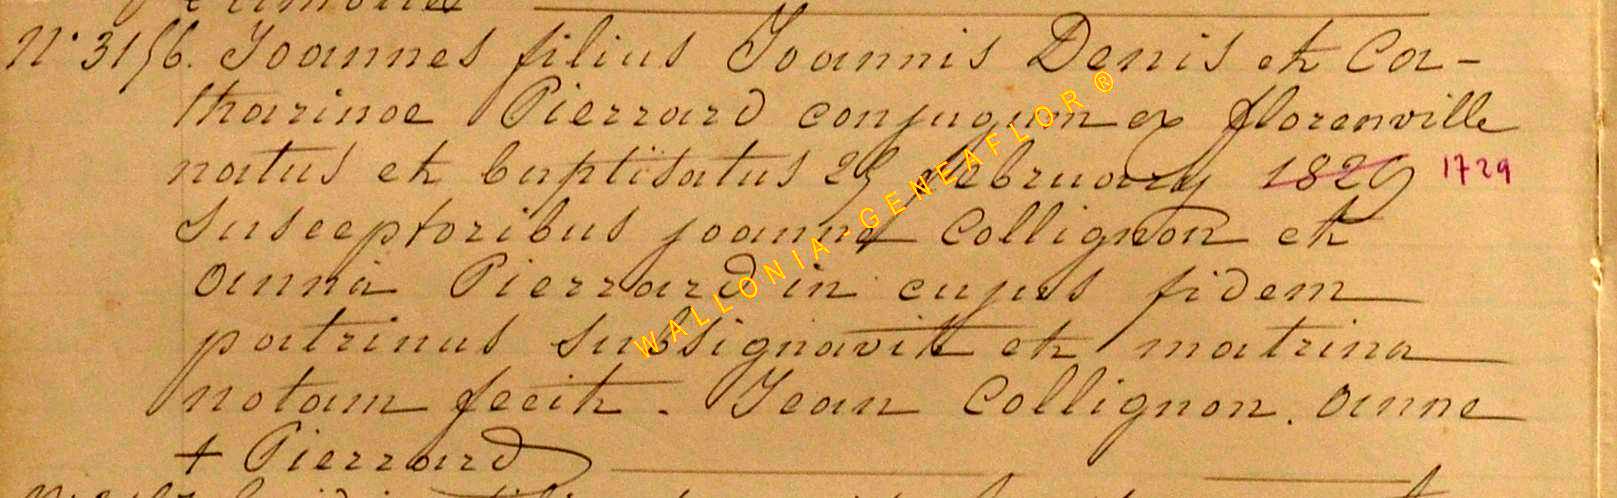 N° 3156. Joannes filius Joannis Denis et Ca-
tharinae Pierrard conjugum ex florenville
natus et baptisatus 25 february 1829 1729
susceptoribus joanne Collignon et
anna Pierrard in cujus fidem
patrinus subsignavit et matrina
notam fecit. Jean Collignon. anne
+ Pierrard
WALLONIA-GENEAFLOR®